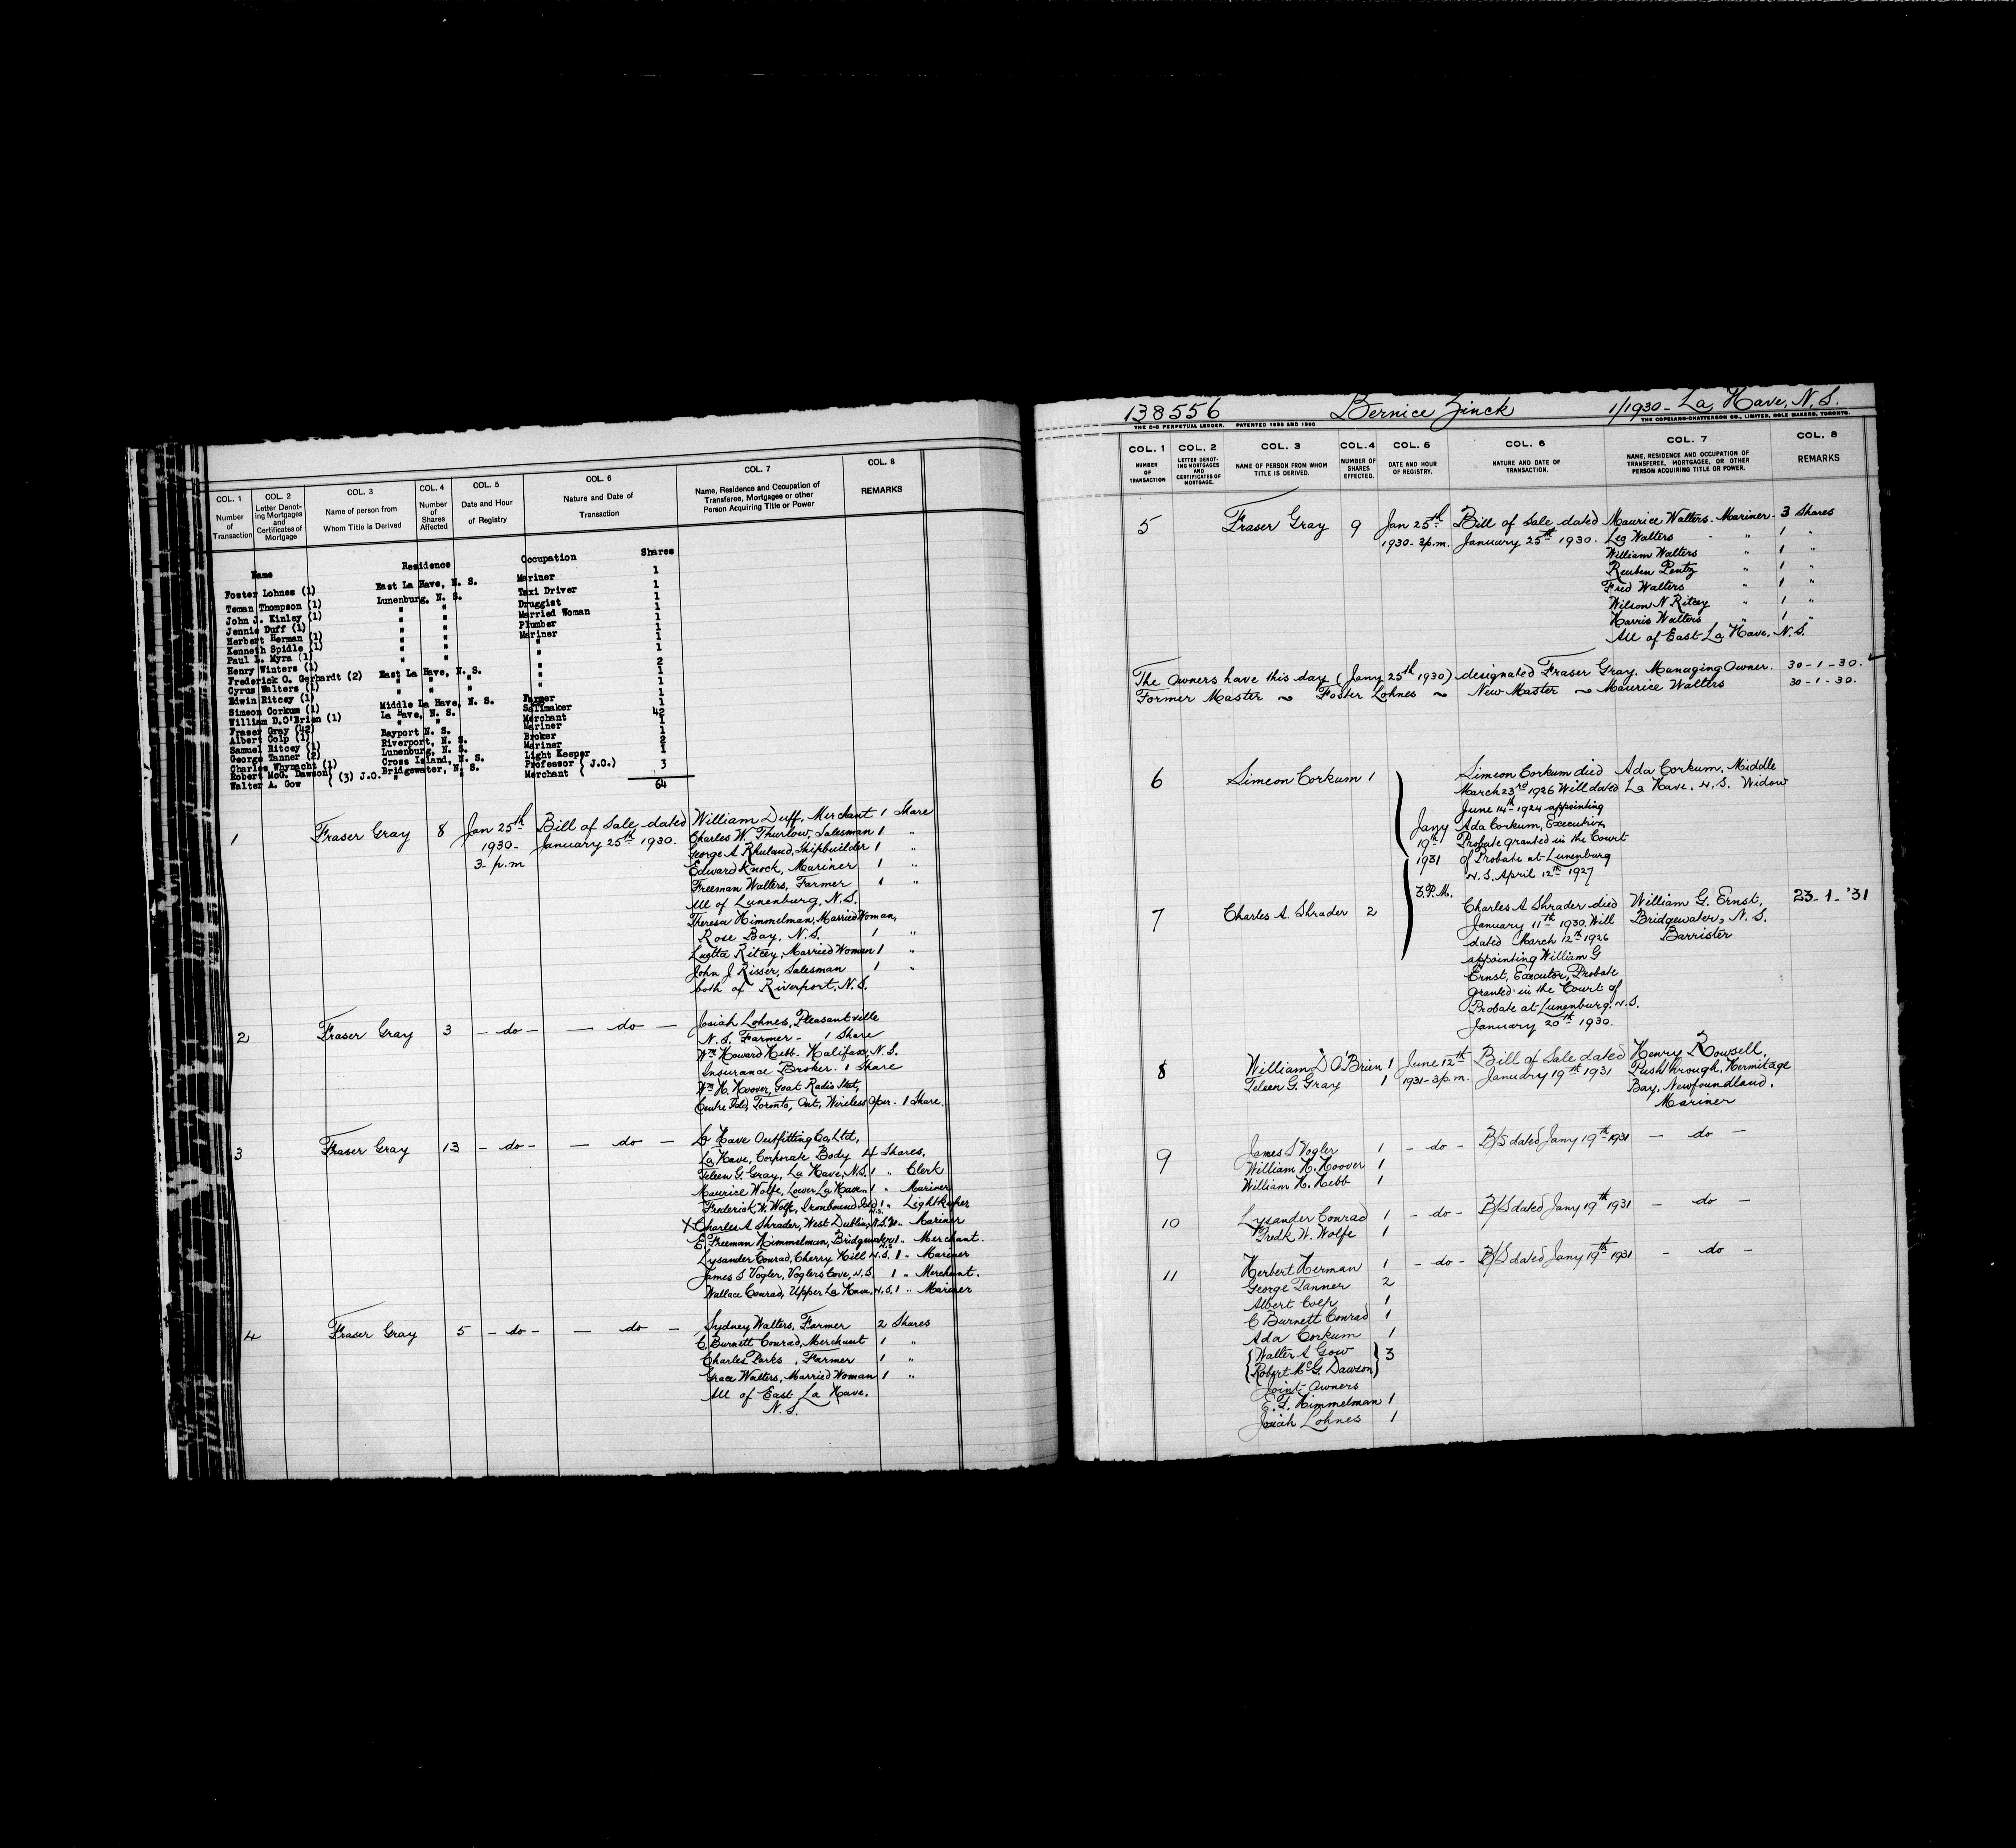 COL. 1 COL. 2 COL. 3 COL. 4 COL. 5 COL. 6 COL. 7 COL. 8
Number of Transaction
Letter Denoting Mortgages and Certificates of Mortgage
Name of person from Whom Title is Derived
Number of Shares Affected
Date and Hour of Registry
Nature and Date of Transaction
Name, Residence and Occupation of Transferee, Mortgagee or other Person Acquiring Title or Power
REMARKS
Name Residence Occupation Shares
Foster Lohnes (1) East La Have, N. S. Mariner 1
Teman Thompson (1) Lunenburg, N. S. Taxi Driver 1
John J. Kinley (1) " " Druggist 1
Jennie Duff (1) " " Married Woman 1
Herbert Herman (1) " " Plumber 1
Kenneth Spidle (1) " " Mariner 1
Paul L. Myra (1) " " " 1
Henry Winters (1) " " " 1
Frederick O. Gerhardt (2) " 2
Cyrus Walters (1) East La Have, N. S. " 1
Edwin Ritcey (1) " " " " 1
Simeon Corkum (1) Middle La Have, N. S. Farmer 1
William D.O'Brien (1) La Have, N. S. Sailmaker 1
Fraser Gray (42) " " Merchant 42
Albert Colp (1) Bayport N. S. Mariner 1
Samuel Ritcey (1) Riverport, N. S. Broker 1
George Tanner (2) Lunenburg, N. S. Mariner 2
Charles Whynacht (1) Cross Island, N. S. Light Keeper 1
Robert McG. Dawson } (3) J.O. Bridgewater, N. S. Professor { J.O.) 3
Walter A. Gow Merchant
64
1 Fraser Gray 8 Jan 25th Bill of Sale dated William Duff, Merchant 1 Share
1930- January 25th 1930. Charles W. Thurlow, Salesman 1 "
3- p.m George A Rhuland, Shipbuilder 1
Edward Knock, Mariner 1 "
Freeman Walters, Farmer 1 "
All of Lunenburg, N.S.
Theresa Himmelman, Married Woman,
Rose Bay, N.S. 1 "
Luetta Ritcey, Married Woman 1
John J Risser, Salesman 1 "
both of Riverport, N.S.
2 Fraser Gray 3 - do - - do - Josiah Lohnes, Pleasantville
N.S. Farmer - 1 Share
Wm Howard Hebb. Halifax, N.S.
Insurance Broker. 1 Share
Wm H. Hoover, Goat Radio Stat,
Centre Isld, Toronto, Ont, Wireless Oper - 1 Share.
3 Fraser Gray 13 - do - - do - La Have Outfitting Co, Ltd,
La Have, Corporate Body 4 Shares,
Teleen G. Gray, La Have, N.S. 1 " Clerk
Maurice Wolfe, Lower La Have 1 " Mariner
Frederick W. Wolfe, Ironbound Isld 1 " Lightkeeper
X Charles A Shrader, West Dublin, N.S. Mariner
E. Freeman Himmelman, Bridgewater 1 " Merchant.
Lysander Conrad, Cherry Hill N.S. 1 " Mariner
James S Vogler, Voglers Cove, N.S. 1 " Merchant.
Wallace Conrad, Upper La Have, N.S. 1 " Mariner
4 Fraser Gray 5 - do - - do - Sydney Walters, Farmer 2 Shares
C Burnett Conrad, Merchant 1 "
Charles Parks, Farmer 1 "
Grace Walters, Married Woman 1 "
All of East La Have.
N.S.
138556 Bernice Zinck 1/1930 - La Have, N.S.
THE C-C PERPETUAL LEDGER. THE COPELAND-CHATTERSON CO., LIMITED, SOLE MAKERS, TORONTO.
COL. 1 COL. 2 COL. 3 COL. 4 COL. 5 COL. 6 COL. 7 COL. 8
NUMBER OF TRANSACTION
LETTER DENOTING MORTGAGES AND CERTIFICATES OF MORTGAGE.
NAME OF PERSON FROM WHOM TITLE IS DERIVED.
NUMBER OF SHARES EFFECTED.
DATE AND HOUR OF REGISTRY.
NATURE AND DATE OF TRANSACTION.
NAME, RESIDENCE AND OCCUPATION OF TRANSFEREE, MORTGAGEE, OR OTHER PERSON ACQUIRING TITLE OR POWER.
REMARKS
5 Fraser Gray 9 Jan 25th Bill of Sale dated Maurice Walters - Mariner - 3 Shares
1930 - 3p.m. January 25th 1930. Leo Walters - " 1 "
William Walters " 1 "
Reuben Pentz " 1 "
Fred Walters " 1 "
Wilson N Ritcey " 1 "
Harris Walters " 1 "
All of East La Have, N.S.
The Owners have this day (Jany 25th 1930) designated Fraser Gray. Managing Owner. 30-1-30.
Former Master ~ Foster Lohnes ~ New Master ~ Maurice Walters 30-1-30.
6 Simeon Corkum 1 Simeon Corkum died Ada Corkum, Middle
March 23rd 1926 Will dated La Have, N.S. Widow
June 14th 1924 appointing
Jany Ada Corkum, Executrix,
19th Probate granted in the Court
1931 of Probate at Lunenburg
N.S. April 12th 1927
3.P.M.
7 Charles A. Shrader 2 Charles A Shrader died William G. Ernst, 23-1-'31
January 11th 1930. Will Bridgewater, N.S.
dated March 12th 1926 Barrister
appointing William G
Ernst, Executor, Probate
granted in the Court of
Probate at Lunenburg, N.S.
January 20th 1930.
8 William D O'Brien 1 June 12th Bill of Sale dated Henry Rowsell,
Teleen G. Gray 1 1931-3p.m. January 19th 1931 Pushthrough, Hermitage
Bay, Newfoundland.
Mariner
9 James S Vogler 1 - do - B/S dated Jany 19th 1931 - do -
William H. Hoover 1
William H. Hebb 1
10 Lysander Conrad 1 - do - B/S dated Jany 19th 1931 - do -
Fredk W. Wolfe 1
11 Herbert Herman 1 - do - B/S dated Jany 19th 1931 - do -
George Tanner 2
Albert Colp 1
C Burnett Conrad 1
Ada Corkum 1
{Walter A Gow } 3
{Robert McG. Dawson}
Joint Owners
E. F. Himmelman 1
Josiah Lohnes 1